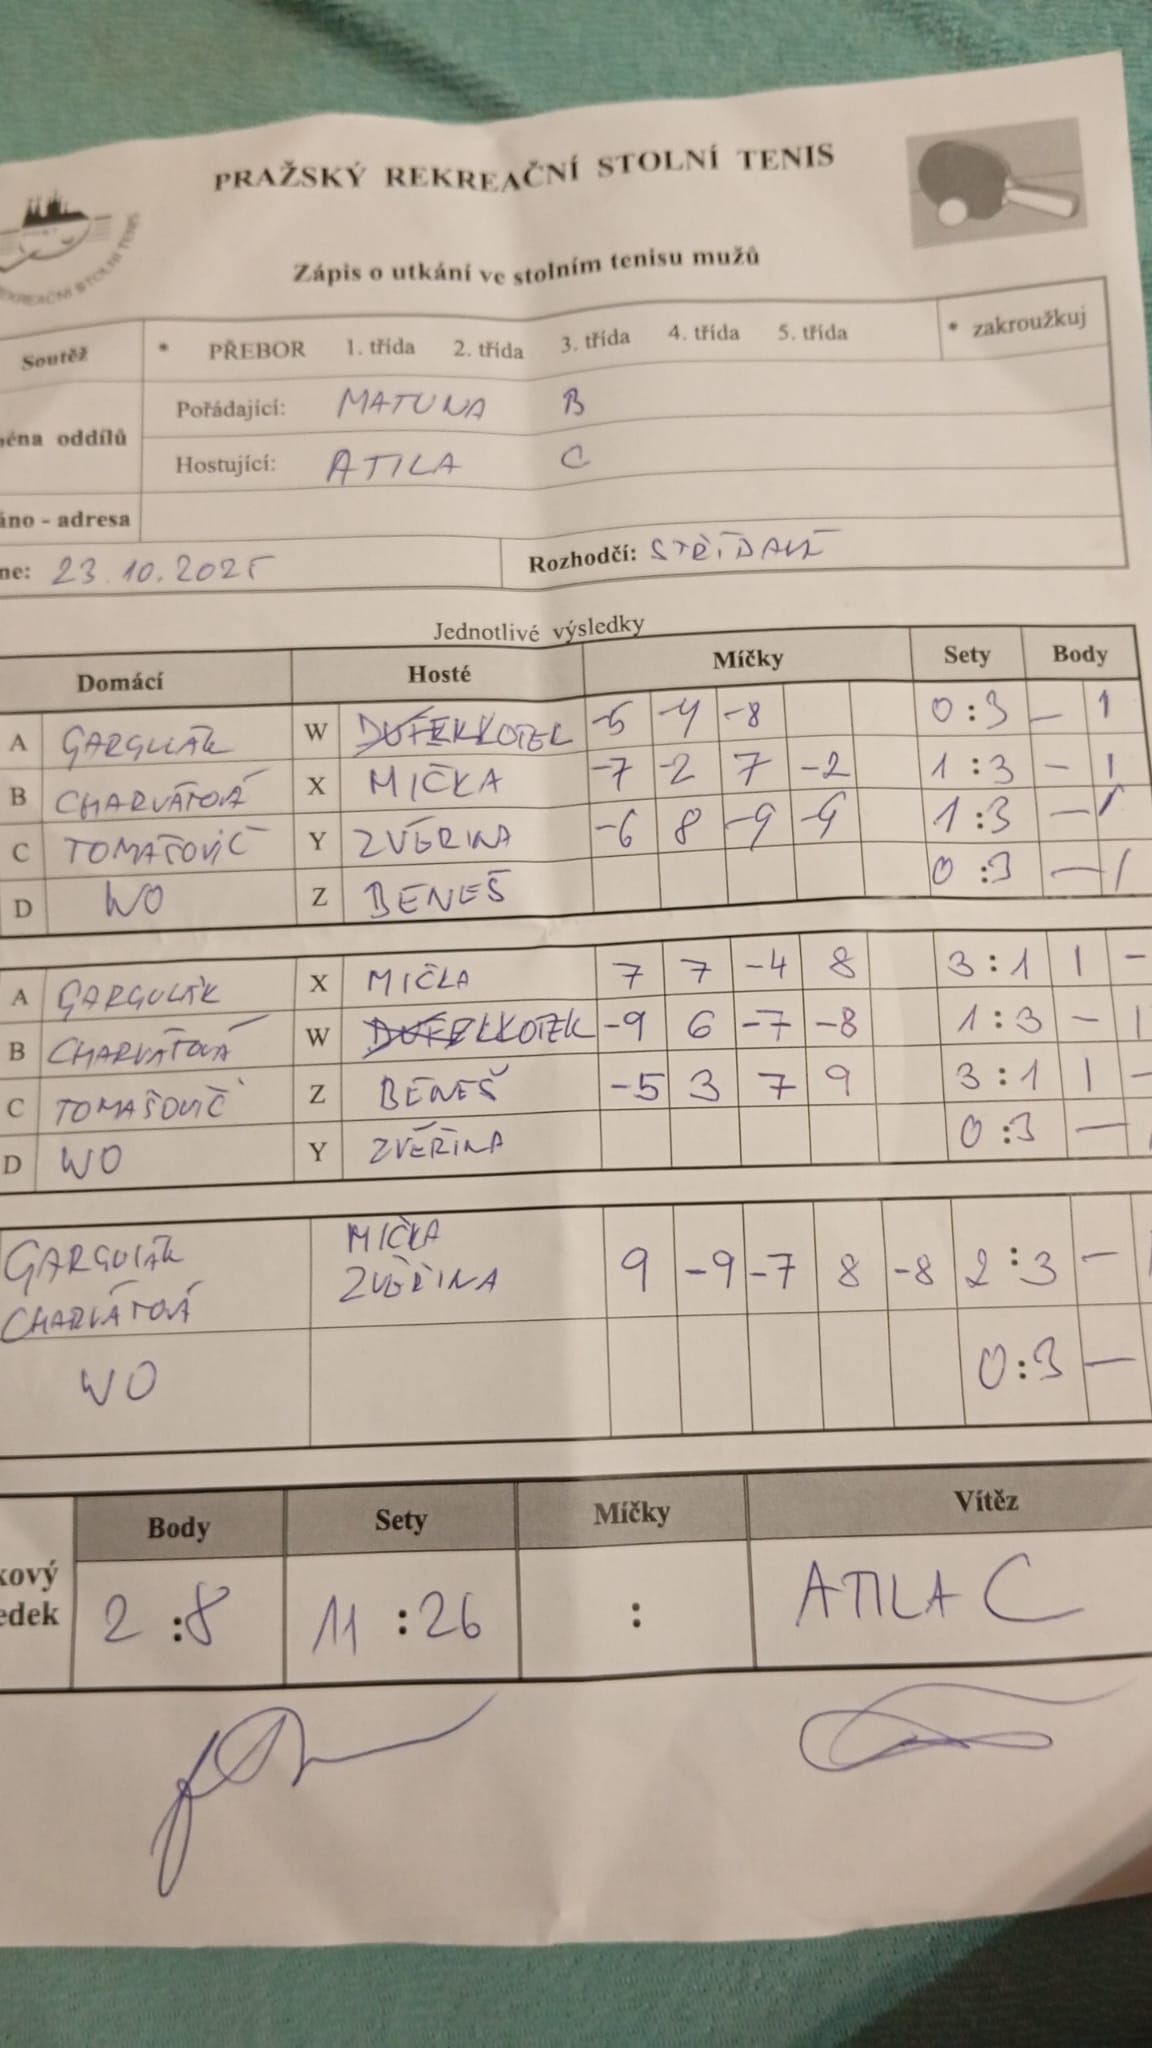 PRAŽSKÝ REKREAČNÍ STOLNÍ TENIS
EKREAČNÍ STOLNÍ TENIS
Zápis o utkání ve stolním tenisu mužů
Soutěž * PŘEBOR 1. třída 2. třída 3. třída 4. třída 5. třída * zakroužkuj
éna oddílů
Pořádající: MATUNA B
Hostující: ATILA C
áno - adresa
ne: 23.10.2025 Rozhodčí: STŘÍDAVĚ
Jednotlivé výsledky
Domácí Hosté Míčky Sety Body
A GARGULÁK W KOTEK -5 -4 -8 0:3 – 1
B CHARVÁTOVÁ X MIČKA -7 -2 7 -2 1:3 – 1
C TOMAŠOVIČ Y ZVĚŘINA -6 8 -9 -9 1:3 – 1
D WO Z BENEŠ 0:3 – 1
A GARGULÁK X MIČKA 7 7 -4 8 3:1 1 –
B CHARVÁTOVÁ W KOTEK -9 6 -7 -8 1:3 – 1
C TOMAŠOVIČ Z BENEŠ -5 3 7 9 3:1 1 –
D WO Y ZVĚŘINA 0:3 –
GARGULÁK MIČKA
CHARVÁTOVÁ ZVĚŘINA 9 -9 -7 8 -8 2:3 –
WO 0:3 –
Body Sety Míčky Vítěz
kový
edek 2:8 11:26 : ATILA C